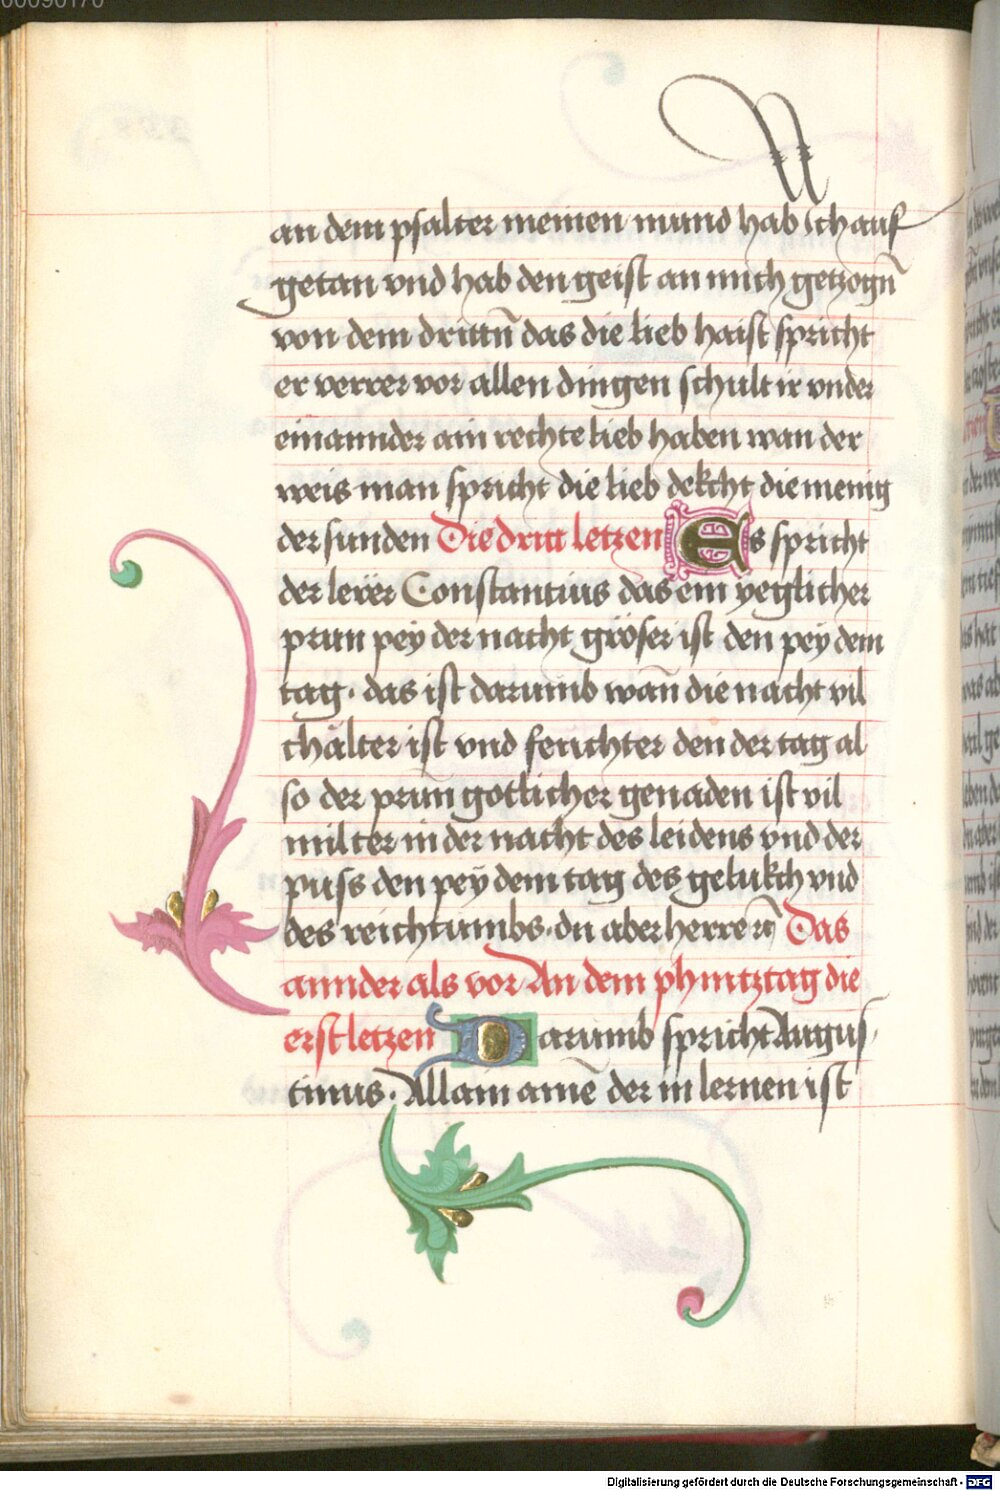 an dem psalter meinen mund hab ich auf
getan vnd hab den geist an mich getzogn̄
von dem drittn̄ das die lieb haist spricht
er verrer vor allen dingen schult ir vnder
einannder ain rechte lieb haben wan der
weis man spricht die lieb dekcht die menig
der sunden Die dritt letzen Es spricht
der lerer Constantius das ein yeglicher
prun pey der nacht gröser ist den pey dem
tag · das ist darumb wan̄ die nacht vil
chälter ist vnd feuchter den der tag al
so der prun gotlicher genaden ist vil
milter in der nacht des leidens vnd der
puss den pey dem tag des gelukch vnd
des reichtumbs · du aber herre rc̄ Das
annder als vor An dem phintztag die
erst letzen Darumb spricht Augus
tinus · Allain ainē der in lernen ist
Digitalisierung gefördert durch die Deutsche Forschungsgemeinschaft - DFG